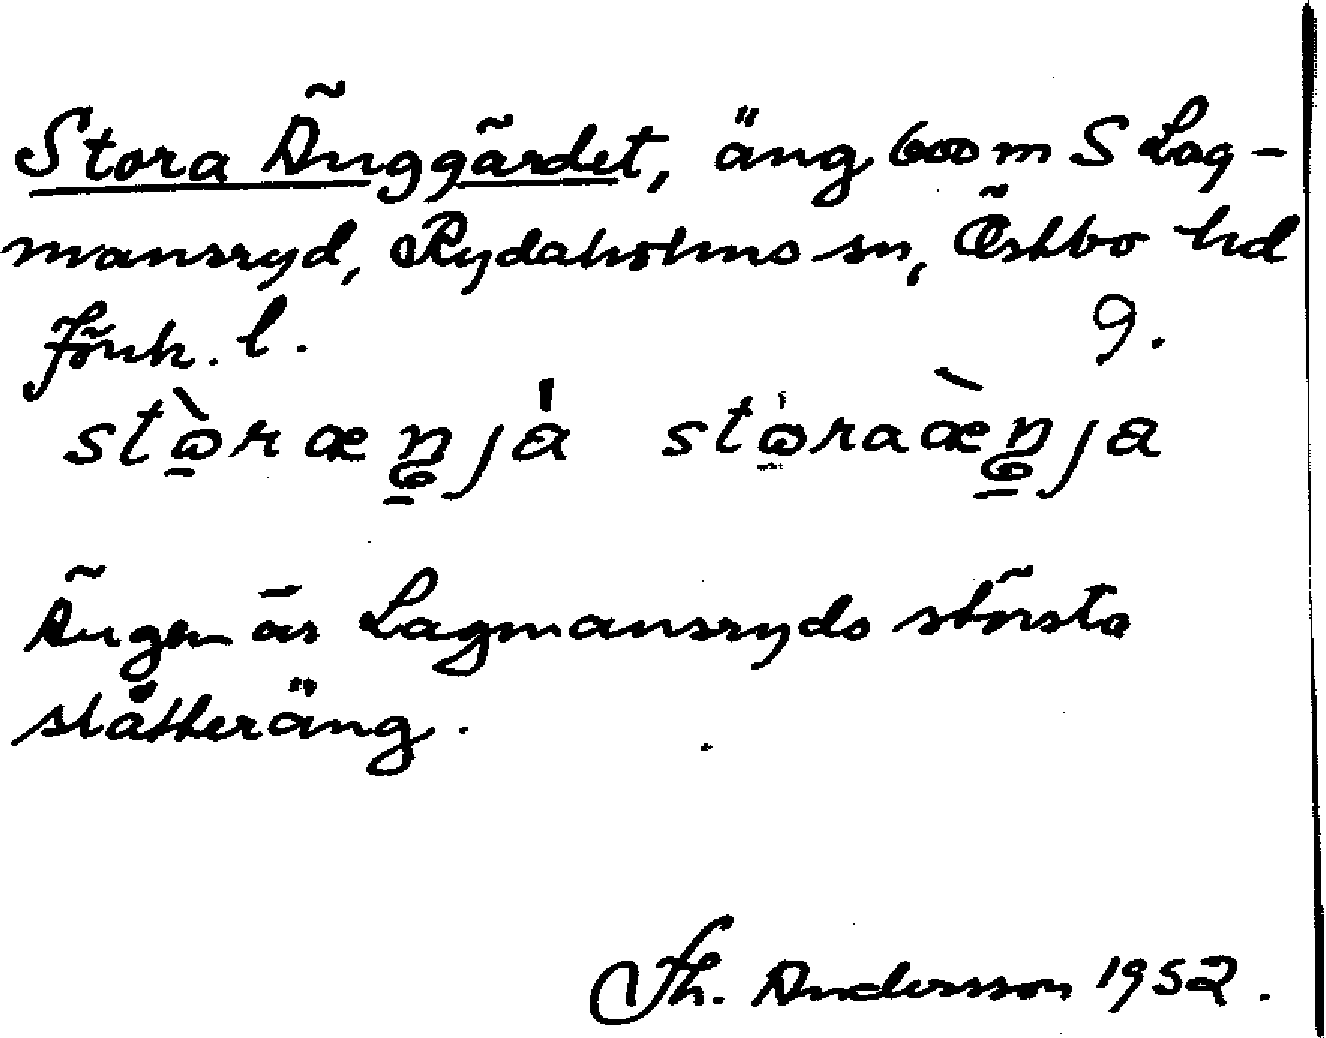 Stora Änggärdet, äng 600 m S Lag-
mansryd, Rydaholms sn, Östbo hd
Jönk. l. 9.
stòrænja storaænja
Ängen är Lagmansryds största
slåtteräng.
Th. Andersson 1952.